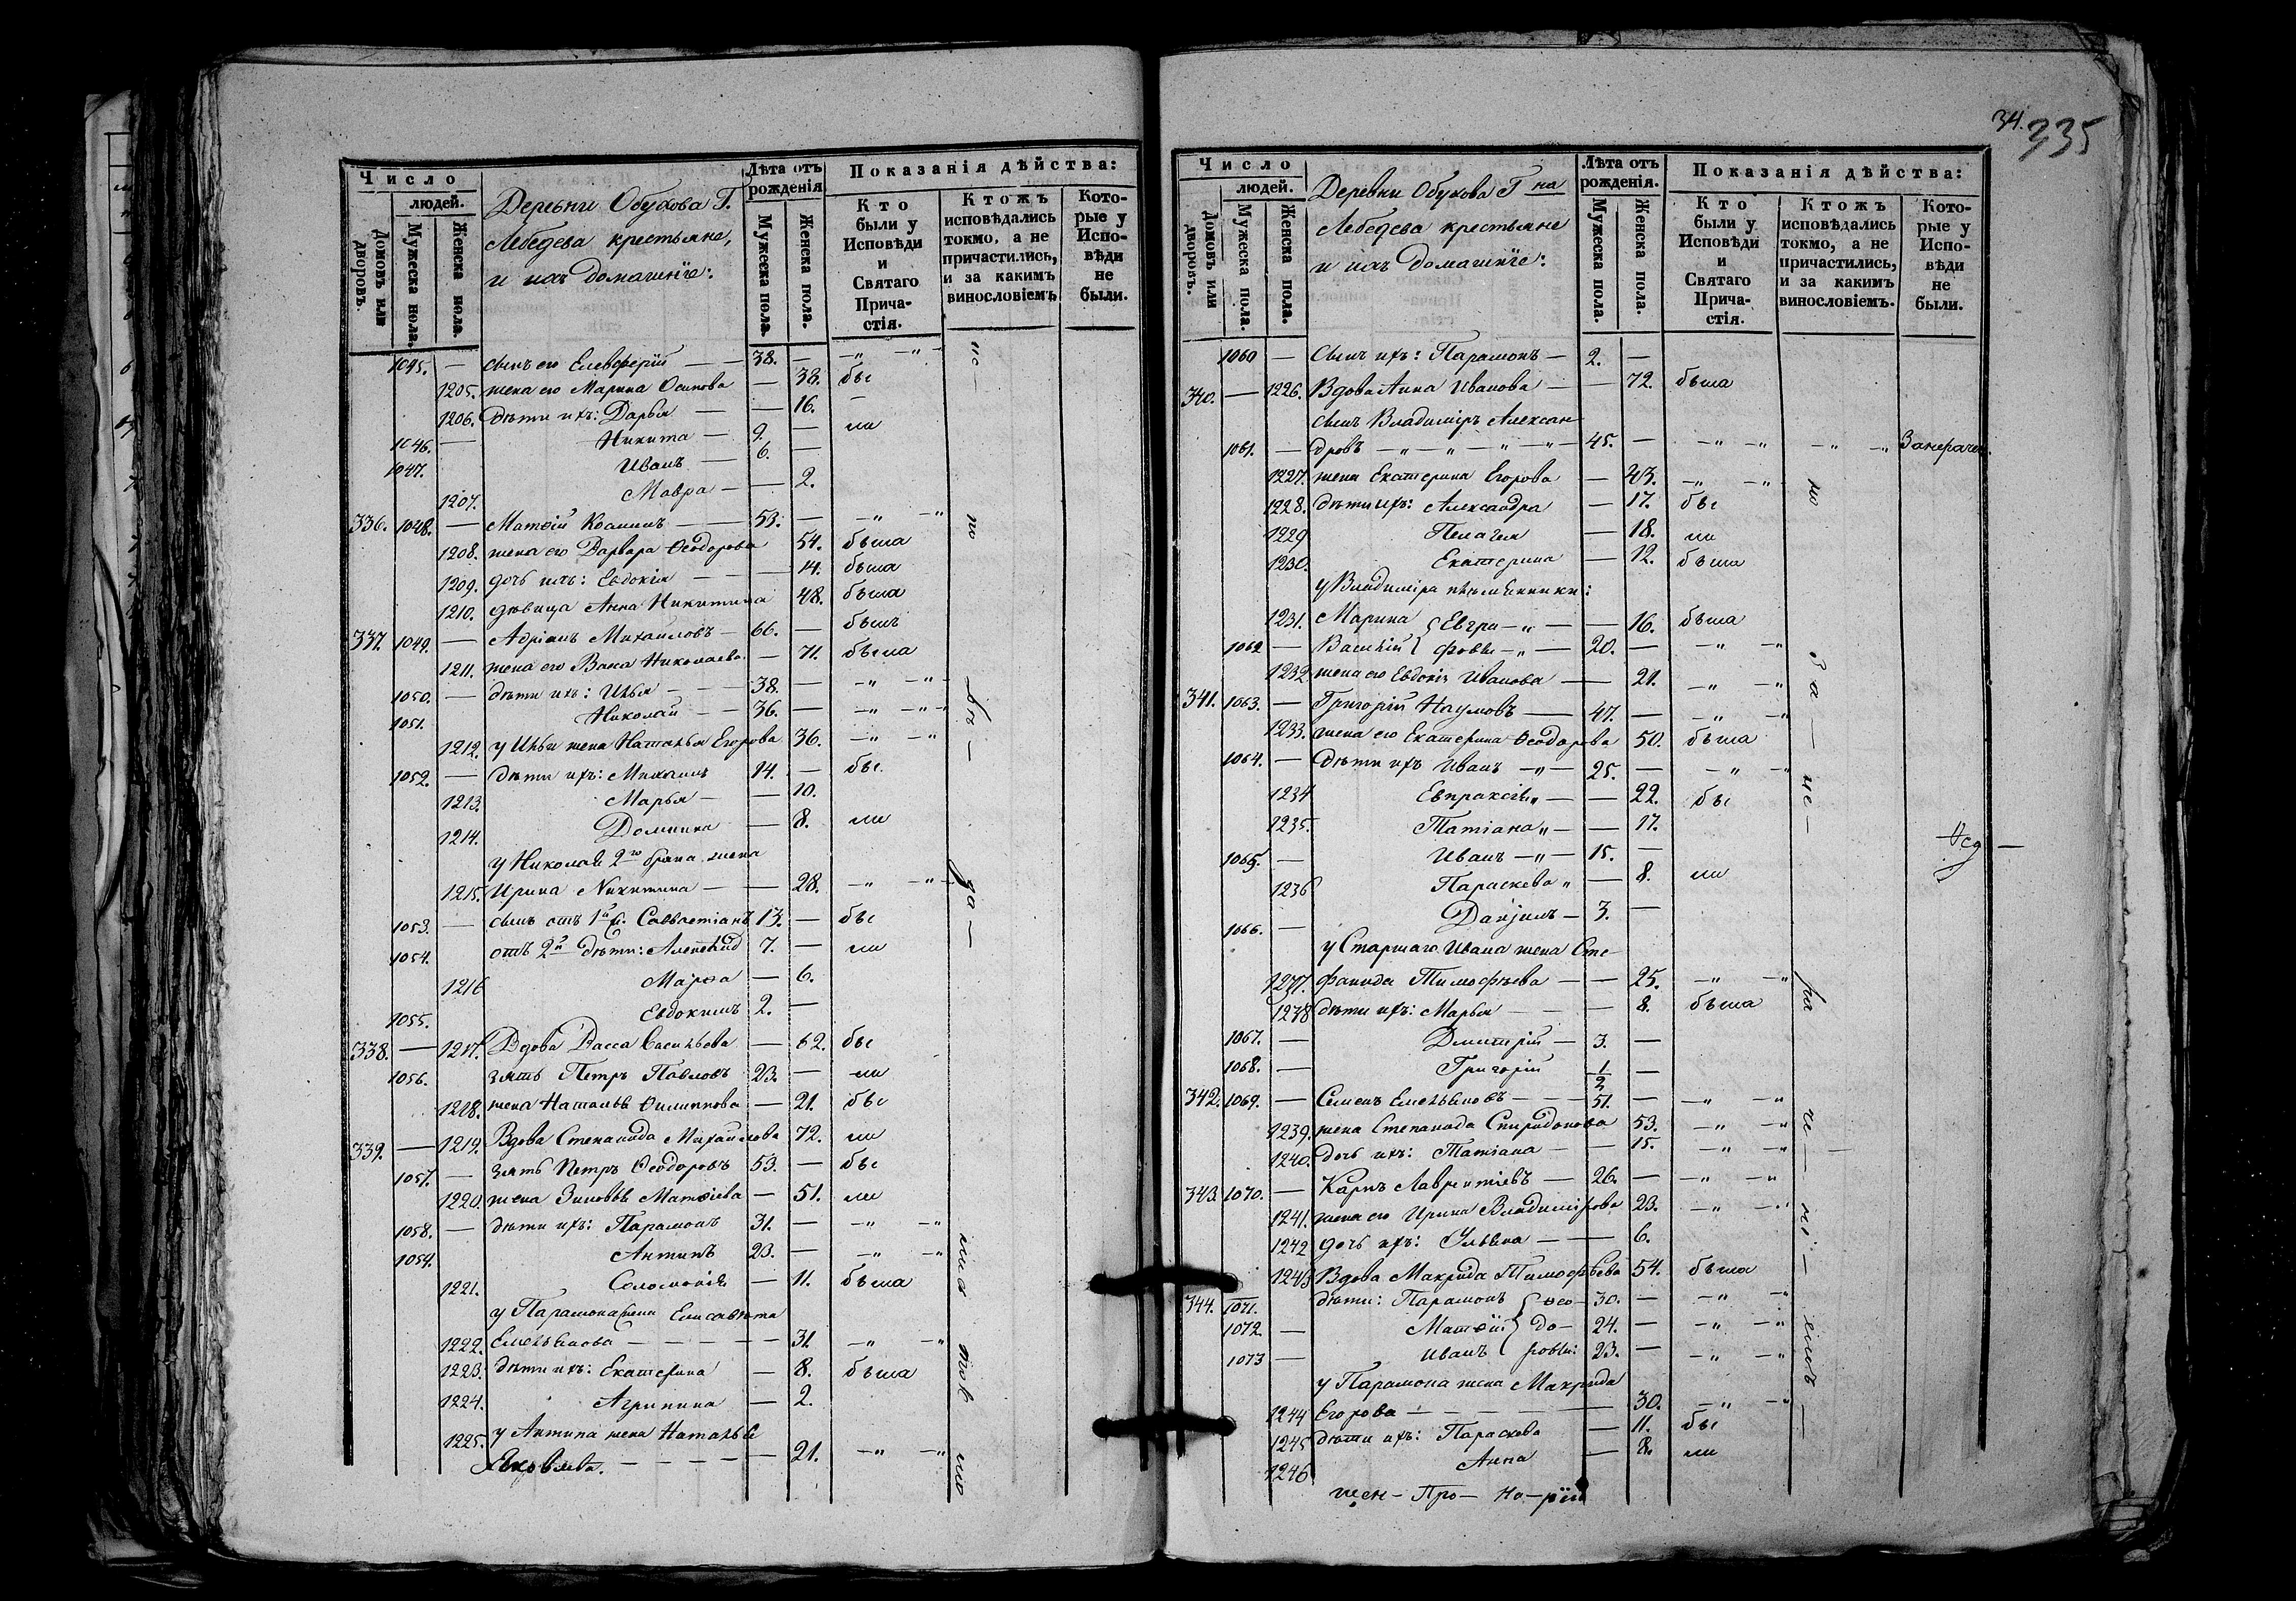 Число
людей.
Домовъ или дворовъ.
Мужеска пола.
Женска пола.
Деревни Обухова Г.
Лебедева крестьяне,
и ихъ домашнїе:
Лѣта отъ рожденія
Мужеска пола.
Женска пола.
Показанія дѣйства:
Кто были у Исповѣди и Святаго Прича- стія.
Ктожъ исповѣдались токмо, а не причастились, и за какимъ винословіемъ
Кото- рые у Испо- вѣди не были.
1045. — сынъ его Елевферій — — 38. — —„ —„—
1205. жена его Марина Осипова — 38. бы
1206. дѣти ихъ: Дарья — — 16. —
1046. — Никита — 9. — ли
1047. Иванъ — 6. —
1207. Мавра — — 2.
336. 1048. — Матѳій Козминъ — 53. — —„ —„
1208. жена его Варвара Ѳеодорова 54. была
1209. дочь ихъ: Евдокія — — — 14. была
1210. дѣвица Анна Никитина 48. была
337. 1049. — Адріанъ Михайловъ — 66. — былъ
1211. жена его Васса Николаева — 71. была
1050. — дѣти ихъ: Илья — — — 38. — —„ —„—
1051. Николай — — 36. — —„ —„—
1212. у Ильи жена Наталья Егорова 36. —„ —„
1052. — дѣти ихъ: Михаилъ 14. — бы
1213. Марья — — 10.
1214. Домника — 8. ли
у Николая 2го брака жена
1215. Ирина Никитина — — 28. —„ —„—
1053. — сынъ отъ 1й Савватіанъ 13. — бы
1054. отъ 2й дѣти: Алексѣй 7. — ли
1216 Марѳа — 6.
1055. Евдокимъ 2. —
338. — 1217. Вдова Васса Васильева — 62. бы
1056. зять Петръ Павловъ 23. — ли
1218. жена Наталья Филиппова — 21. бы
339. — 1219. Вдова Степанида Михайлова 72. ли
1057. — зять Петръ Ѳеодоровъ 53. — бы
1220. жена Зиновья Матѳіева — 51. ли
1058. — дѣти ихъ: Парамонъ 31. — —„ —„
1054. Антипъ 23. — —„ —„
1221. Соломонія — 11. была
у Парамона жена Елисавета
1222. Емельянова — — — — — 31. —„ —„
1223. дѣти ихъ: Екатерина — 8. была
1224. Агрипина — 2.
1225. у Антипа жена Наталья
Яковлева. — — — — — 21. —„ —„
34.
335
Число
людей.
Домовъ или дворовъ.
Мужеска пола.
Женска пола.
Деревни Обухова Гна
Лебедева крестьяне
и ихъ домашнїе:
Лѣта отъ рожденія.
Мужеска пола.
Женска пола.
Показанія дѣйства:
Кто были у Исповѣди и Святаго Прича- стія.
Ктожъ исповѣдались токмо, а не причастились, и за какимъ винословіемъ.
Кото- рые у Испо- вѣди не были.
1060 — Сынъ ихъ: Парамонъ — 2. —
340. — 1226. Вдова Анна Иванова — — 72. была
сынъ Владиміръ Алексан
1061. — дровъ —„—„—„—„— 45. — —„ —„ —„ —„
1227. жена Екатерина Егорова — 43. —„ —„
1228. дѣти ихъ: Александра — 17. бы
1229 Пелагея — 18. ли
1230. Екатерина — 12. была
у Владиміра племянники:
1231. Марина Евгра —„— — 16. была
1062 — Василій фовы —„— 20. — —„ —„
1232. жена его Евдокія Иванова — 21. —„ —„
341. 1063. — Григорій Наумовъ — 47. — —„ —„
1233. жена его Екатерина Ѳеодорова 50. была
1064. — Дѣти ихъ Иванъ —„— 25. — —„ —„
1234 Евпраксія „ — — 22. бы
1235. Татіана „ — — 17.
1065. — Иванъ —„— 15. —
1236 Параскева „ — 8. ли
1066. — Даніилъ — 3. —
у Старшаго Ивана жена Сте-
1237. фанида Тимофѣева — — 25. —„ —„
1238 дѣти ихъ: Марья — — — 8. была
1067. — Дмитрій — 3. —
1068. — Григорій 1/2 —
342. 1069. — Семенъ Емельяновъ — — — 51. — —„ —„
1239. жена Степанида Спиридонова 53. —„ —„
1240. дочь ихъ: Татіана — — 15. —„ —„
343. 1070. — Карпъ Лаврентіевъ — 26. — —„ —„
1241. жена его Ирина Владимірова 23. —„ —„
1242 дочь ихъ: Ульяна — — 6.
1243 Вдова Макрида Тимофѣева 54. была
344. 1071. дѣти: Парамонъ Ѳео- 30. — —„ —„
1072. — Матѳій до- 24. — —„ —„
1073 — Иванъ ровы: 23. — —„ —„
у Парамона жена Макрида
1244 Егорова — — — — — 30. —„ —„
1245 дѣти ихъ: Параскева — 11. бы
1246 Анна — 8. ли
щен- Про- но- рїй